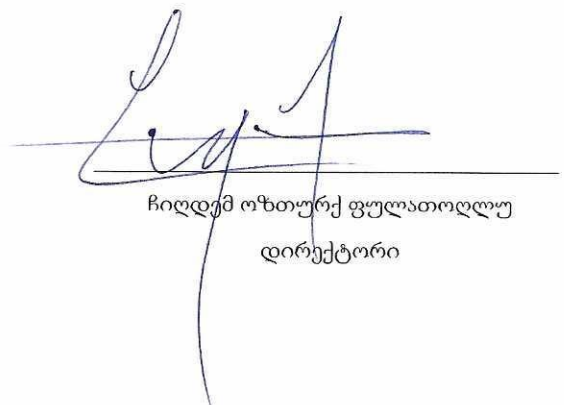 ჩიღდემ ოზთურქ ფულათოღლუ
დირექტორი